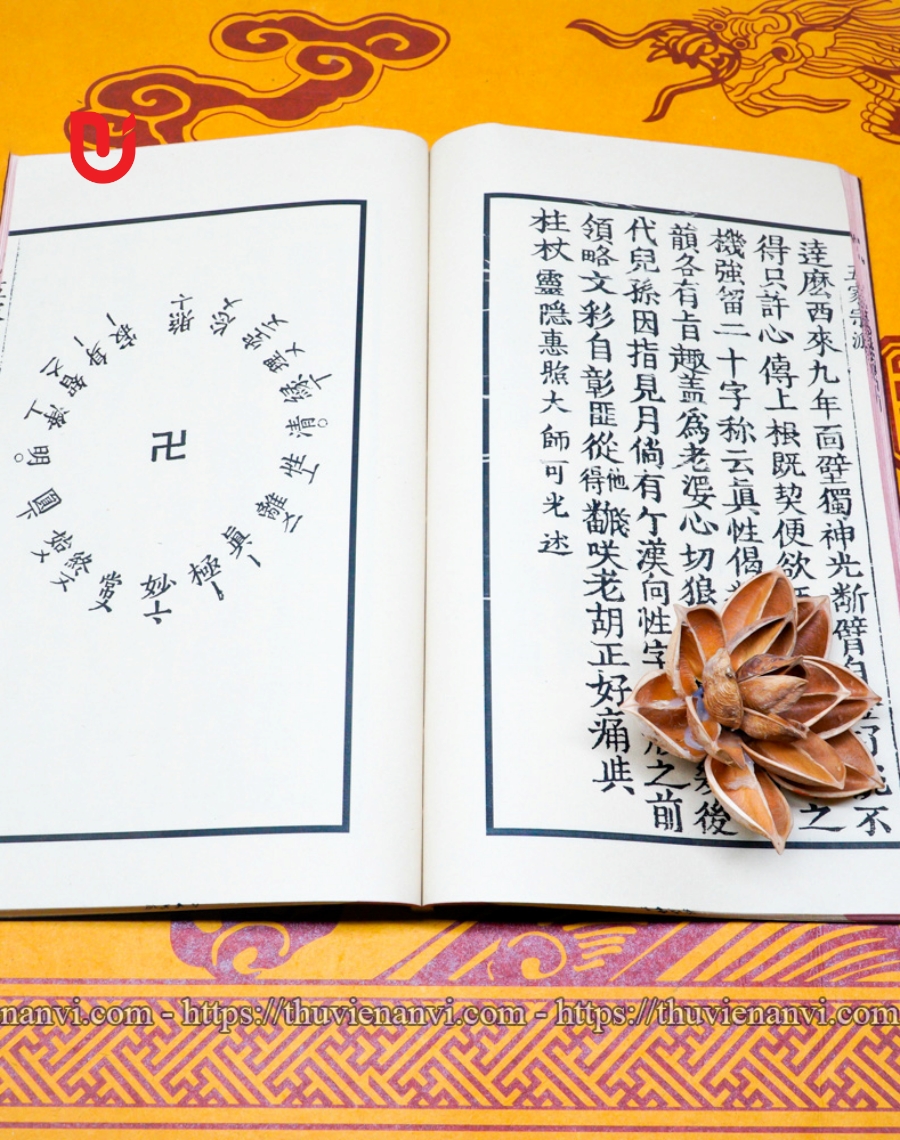 五家宗派
達麽西來九年面壁獨神光斷臂自不
得只許心傳上根既契便欲之
機強留二十字称云眞性偈
韻各有旨趣盖爲老婆心切狼後
代兒孫因指見月倘有个漢向性字之前
領略文彩自彰匪從他得飜咲老胡正好痛與
拄杖靈隐惠照大師可光述
照
緣
清
性
離
眞
極
妙
常
終
始
圓
明
淨
智
身
寂
卍
nanvi.com - https://thuvienanvi.com - https://thuvienanvi.com